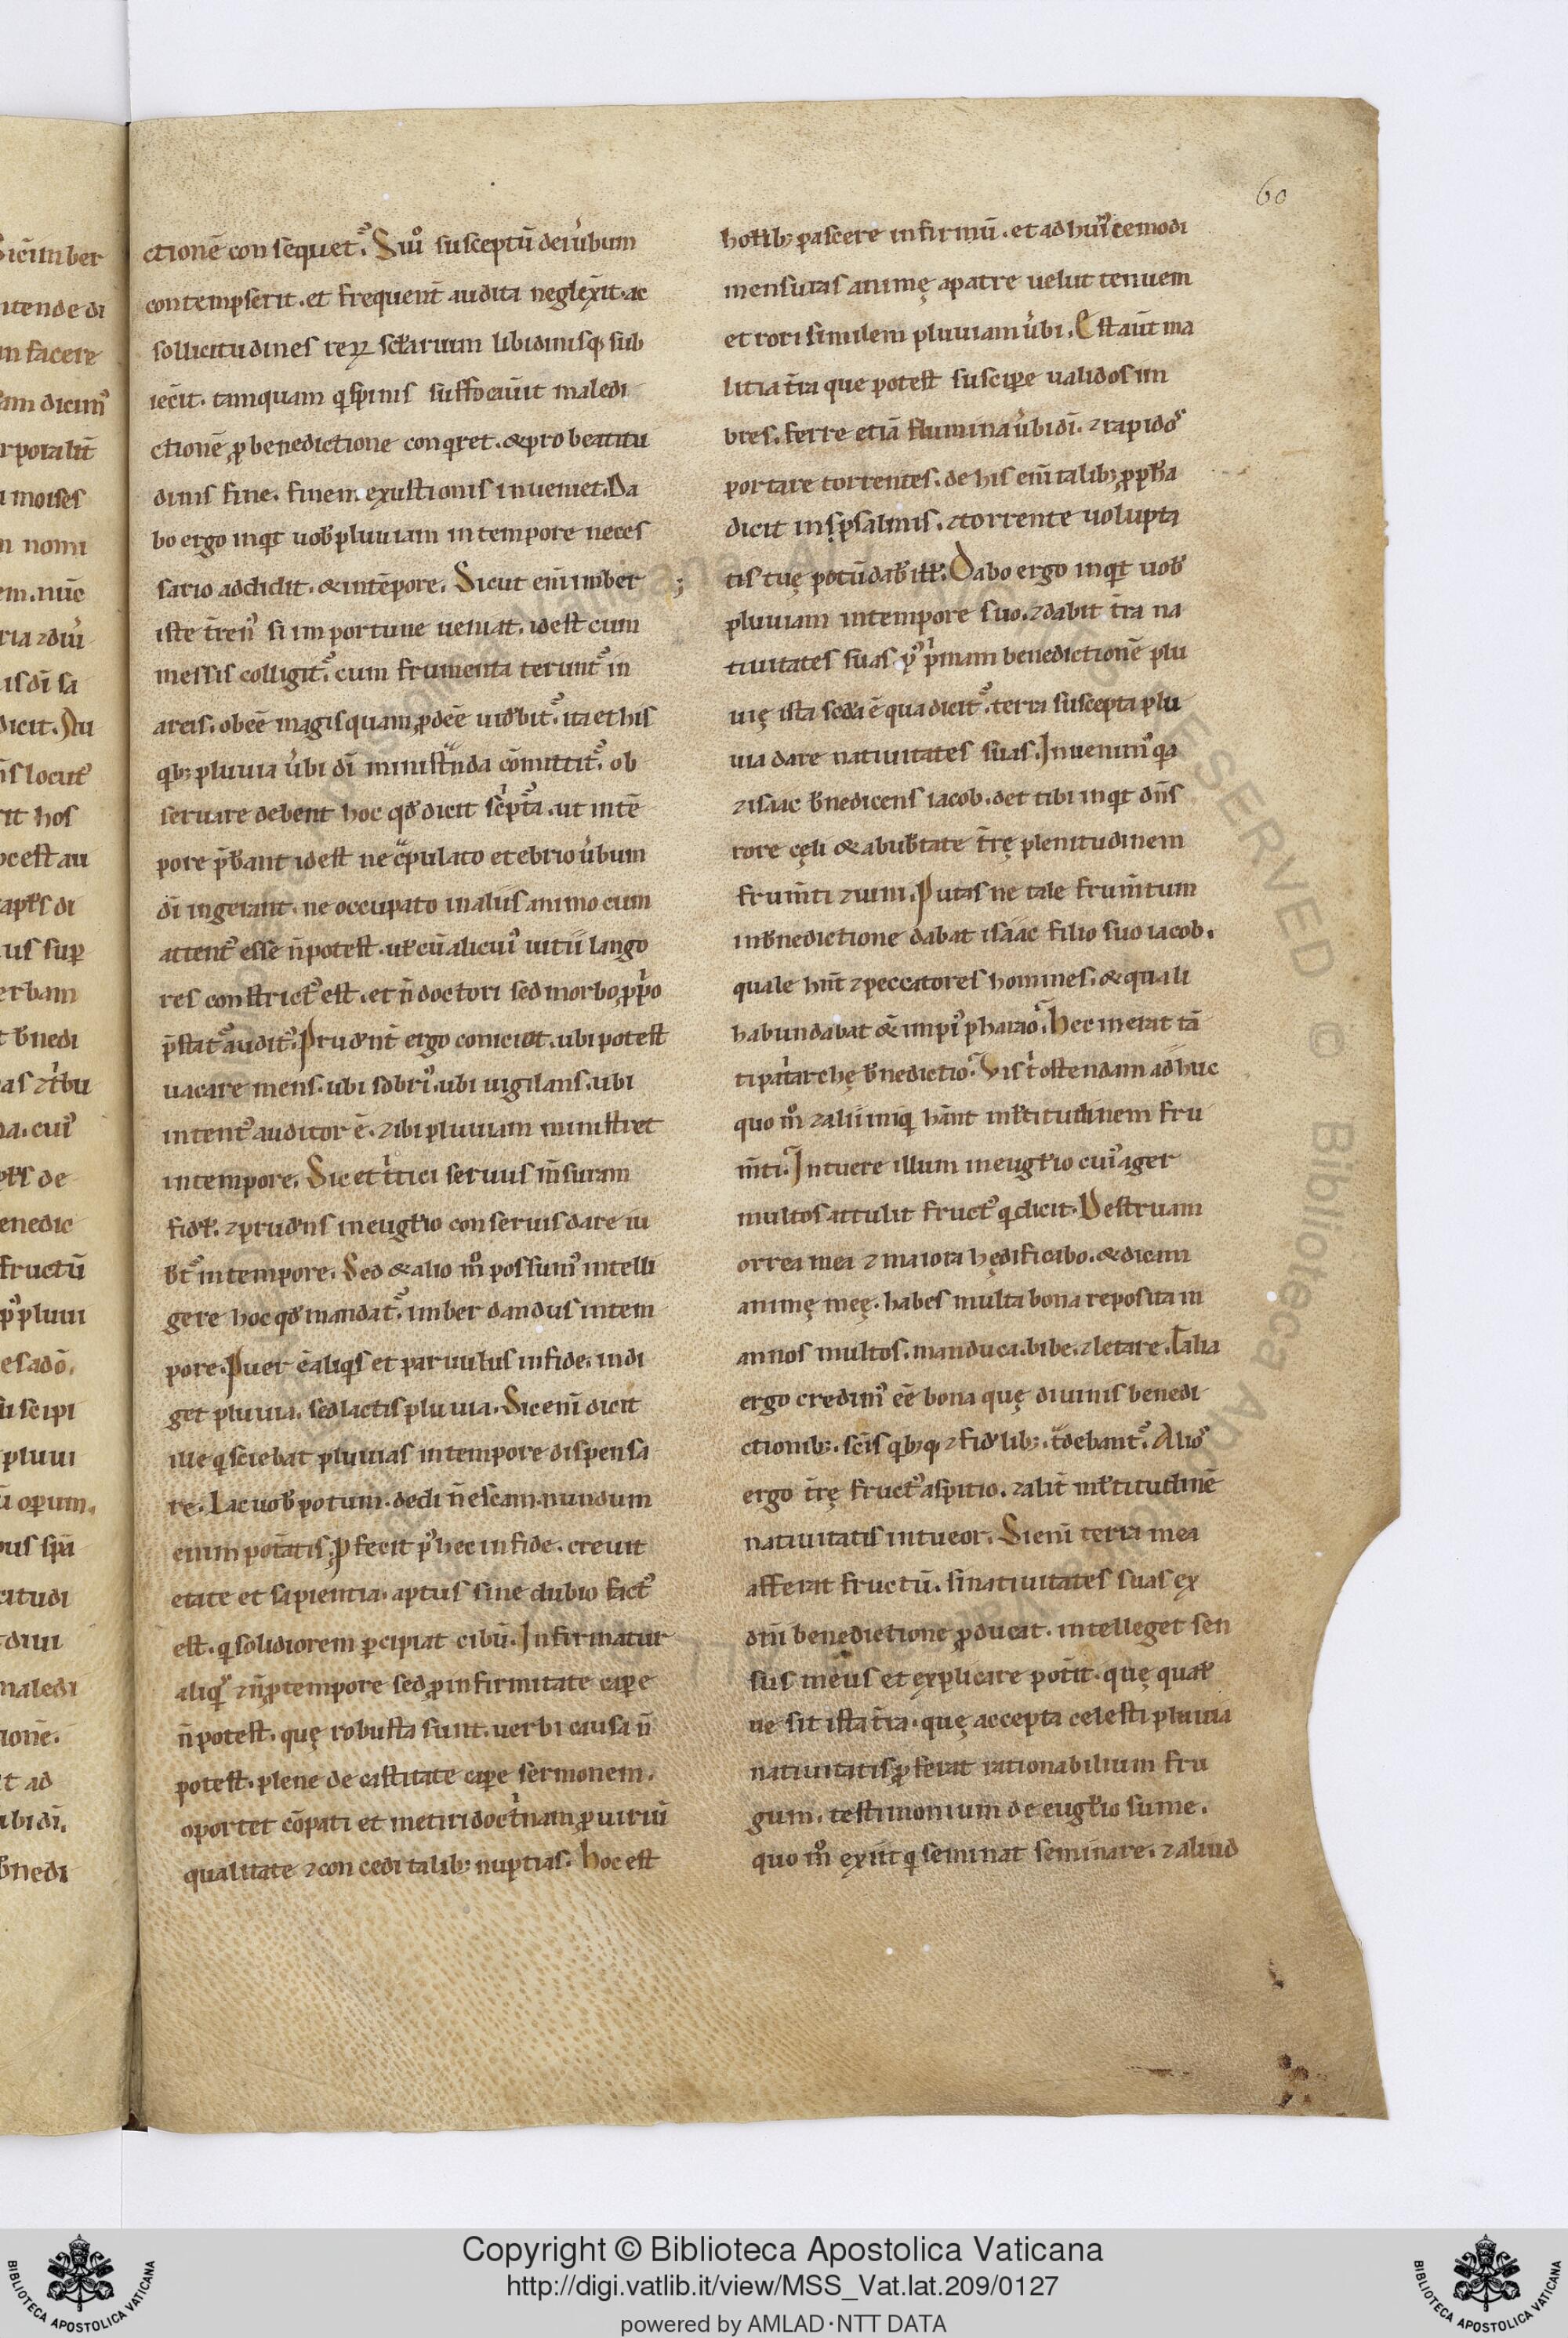 60
ctionē consequet᷑. Si uͦ susceptū dei u̓bum
contempserit. et frequent̄ audita neglexit. ac
sollicitudines reꝝ sclarium libidinisq; sub
iecit. tamquam qͥ spinis suffocauit maledi
ctionē ꝓ benedictione conqͥret. & pro beatitu
dinis fine. finem exustionis inueniet. Da
bo ergo inqͥt uob̄ pluuiam in tempore neces
sario addidit. & in tēpore. Sicut eni̅ imber
iste t̄renꝰ si importune ueniat. id est cum
messis colligit᷑. cum frumenta terunt᷑ in
areis. obeē magis quam ꝓdeē uidebit᷑. ita et his
qͥb; pluuia u̓bi dī ministranda cōmittit᷑. ob
seruare debent hoc qd̓ dicit sc̓ptᷓa. ut in tē
pore p̄beant id est ne crapulato et ebrio u̓bum
dī ingerant. ne occupato in aliis animo cum
attentꝰ esse n̄ potest. ul̓ cū alicuiꝰ uitii lango
res constrictꝰ est. et n̄ doctori sed morbo ꝓpͥo
p̄stat audit᷑. Prudent̄ ergo coniciat. ubi potest
uacare mens. ubi sobriꝰ. ubi uigilans. ubi
intentꝰ auditor ē. ⁊ ibi pluuiam ministret
in tempore. Sic et tͥtici seruus m̄suram
fidel̓. ⁊ prudens in eugl̓io conseruis dare iu
bet᷑ in tempore. Sed & alio mͦ possumꝰ intelli
gere hoc qd̓ mandat᷑. imber dandus in tem
pore. Puer ē aliqͥs et paruulus in fide. indi
get pluuia. sed lactis pluuia. Sic eni̅ dicit
ille qͥ sciebat pluuias in tempore dispensa
re. Lac uob̄ potum. dedi n̄ escam. nundum
enim potātis. ꝓfecit pꝰ hec in fide. creuit
etate et sapientia. aptus sine dubio factꝰ
est. qͥ solidiorem ꝑcipiat cibū. Infirmatur
aliqͥs ⁊ n̄ ꝓ tempore sed ꝓ infirmitate capere
n̄ potest. quę robusta sunt. uerbi causa n̄
potest. plene de castitate capere sermonem.
oportet cōpati et metiri doctͥnam ꝓ uiriū
qualitate ⁊ concedi talib; nuptias. Hoc est
holib; pascere infirmū. et ad huiꝰcemodi
mensuras animę a patre uelut tenuem
et rori similem pluuiam u̓bi. Est aut̄ ma
litia t̄ra que potest suscipere ualidos im
bres. ferre etiā flumina u̓bi dī. ⁊ rapidos
portare torrentes. de his eni̅ talib; ꝓph̄a
dicit in psalmis. ⁊ torrente uolupta
tis tuę potū dab̄ ill̓. Dabo ergo inqͥt uob̄
pluuiam in tempore suo. ⁊ dabit t̄ra na
tiuitates suas pꝰ pͥmam benedictionē plu
uię ista sedᷓa ē qua dicit᷑. terra suscepta plu
uia dare natiuitates suas. Inuenimꝰ qͥa
⁊ isaac bn̄edicens iacob. det tibi inqͥt dn̄s
rore cęli & ab ubertate t̄rę plenitudinem
frum̄ti ⁊ uini. Putas ne tale frum̄tum
in bn̄edictione dabat isaac filio suo iacob.
quale hn̄t ⁊ peccatores homines. & quali
habundabat & impiꝰ pharao. Hec ine erat tā
ti patͥarchę bn̄edictio. Vis t̄ ostendam adhuc
quo mͦ ⁊ alii iniqͥ hānt ml̓titudinem fru
m̄ti. Intuere illum in eugl̓io cuiꝰ ager
multos attulit fructꝰ qͥ dicit. Destruam
orrea mea ⁊ maiora hędificabo. & dicam
animę meę. habes multa bona reposita in
annos multos. manduca. bibe. ⁊ letare. Talia
ergo credimꝰ eē bona quę diuinis benedi
ctionib; scīs qͥb;q; ⁊ fidelib; tᷓdebant᷑. Alios
ergo t̄rę fructꝰ aspitio. ⁊ alit̄ ml̓titudinē
natiuitatis intueor. Si eni̅ terra mea
afferat fructū. si natiuitates suas ex
dn̄i benedictione ꝓducat. intelleget sen
sus meus et explicare pot̄it. quę qual̓
ue sit ista t̄ra. quę accepta celesti pluuia
natiuitatis ꝓferat rationabilium fru
gum. testimonium de eugl̓io sume.
quo mͦ exiit qͥ seminat seminare. ⁊ aliud
Copyright © Biblioteca Apostolica Vaticana
http://digi.vatlib.it/view/MSS_Vat.lat.209/0127
powered by AMLAD·NTT DATA